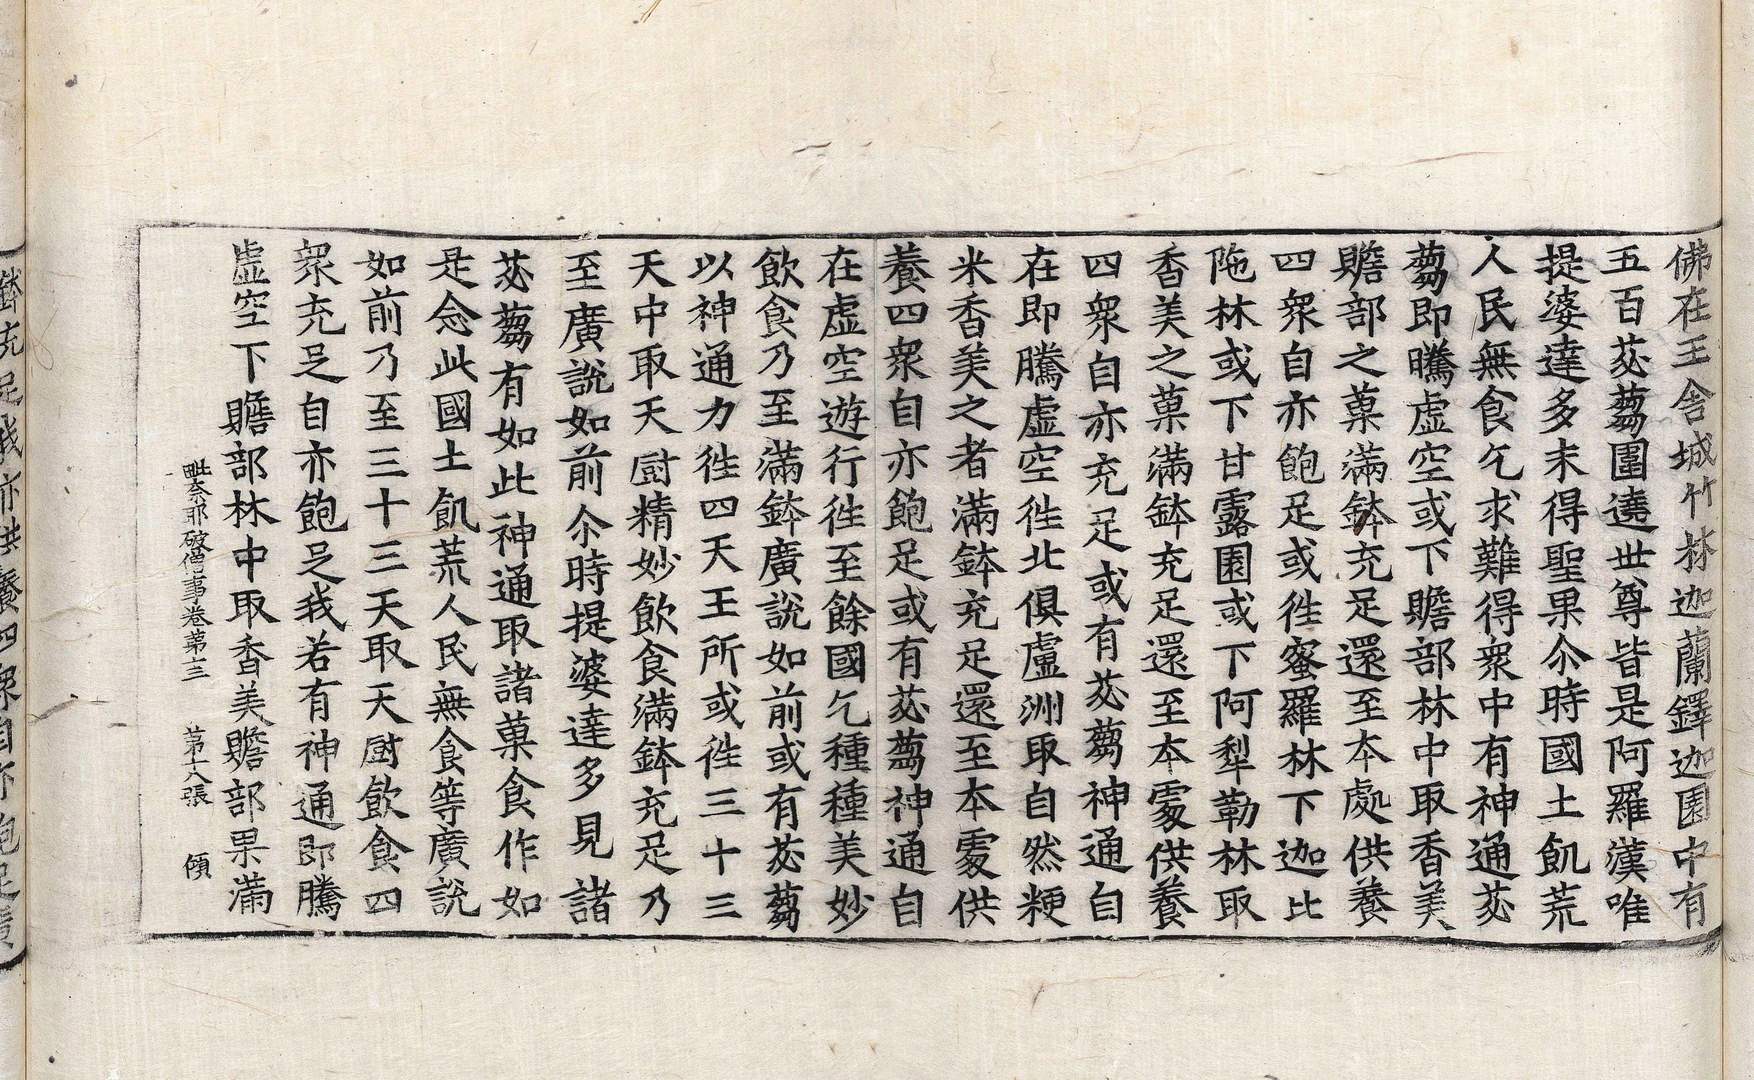 佛在王舍城竹林迦蘭鐸迦園中有
五百苾蒭圍遶世尊皆是阿羅漢唯
提婆達多未得聖果尒時國土飢荒
人民無食乞求難得衆中有神通苾
蒭即騰虛空或下贍部林中取香美
贍部之菓滿鉢充足還至本處供養
四衆自亦飽足或往蜜羅林下迦比
陁林或下甘露園或下阿犁勒林取
香美之菓滿鉢充足還至本處供養
四衆自亦充足或有苾蒭神通自
在即騰虛空往北俱盧洲取自然粳
米香美之者滿鉢充足還至本處供
養四衆自亦飽足或有苾蒭神通自
在虛空遊行往至餘國乞種種美妙
飲食乃至滿鉢廣說如前或有苾蒭
以神通力往四天王所或往三十三
天中取天廚精妙飲食滿鉢充足乃
至廣說如前尒時提婆達多見諸
苾蒭有如此神通取諸菓食作如
是念此國土飢荒人民無食等廣說
如前乃至三十三天取天廚飲食四
衆充足自亦飽足我若有神通即騰
虛空下贍部林中取香美贍部果滿
毗奈耶破僧事卷第十三 第十八張 傾
鉢充足我亦供養四衆自亦飽足廣